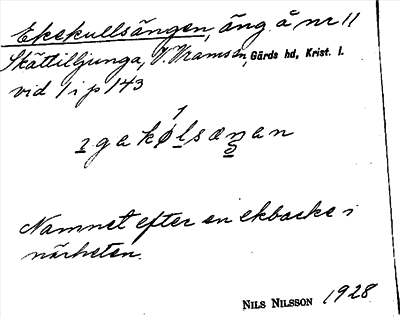 Ekekullsängen, äng å nr 11
Skättilljunga, V. Vramsn, Gärds hd, Krist. l.
vid 1 i p 143
Namnet efter en ekbacke i
närheten.
NILS NILSSON 1928